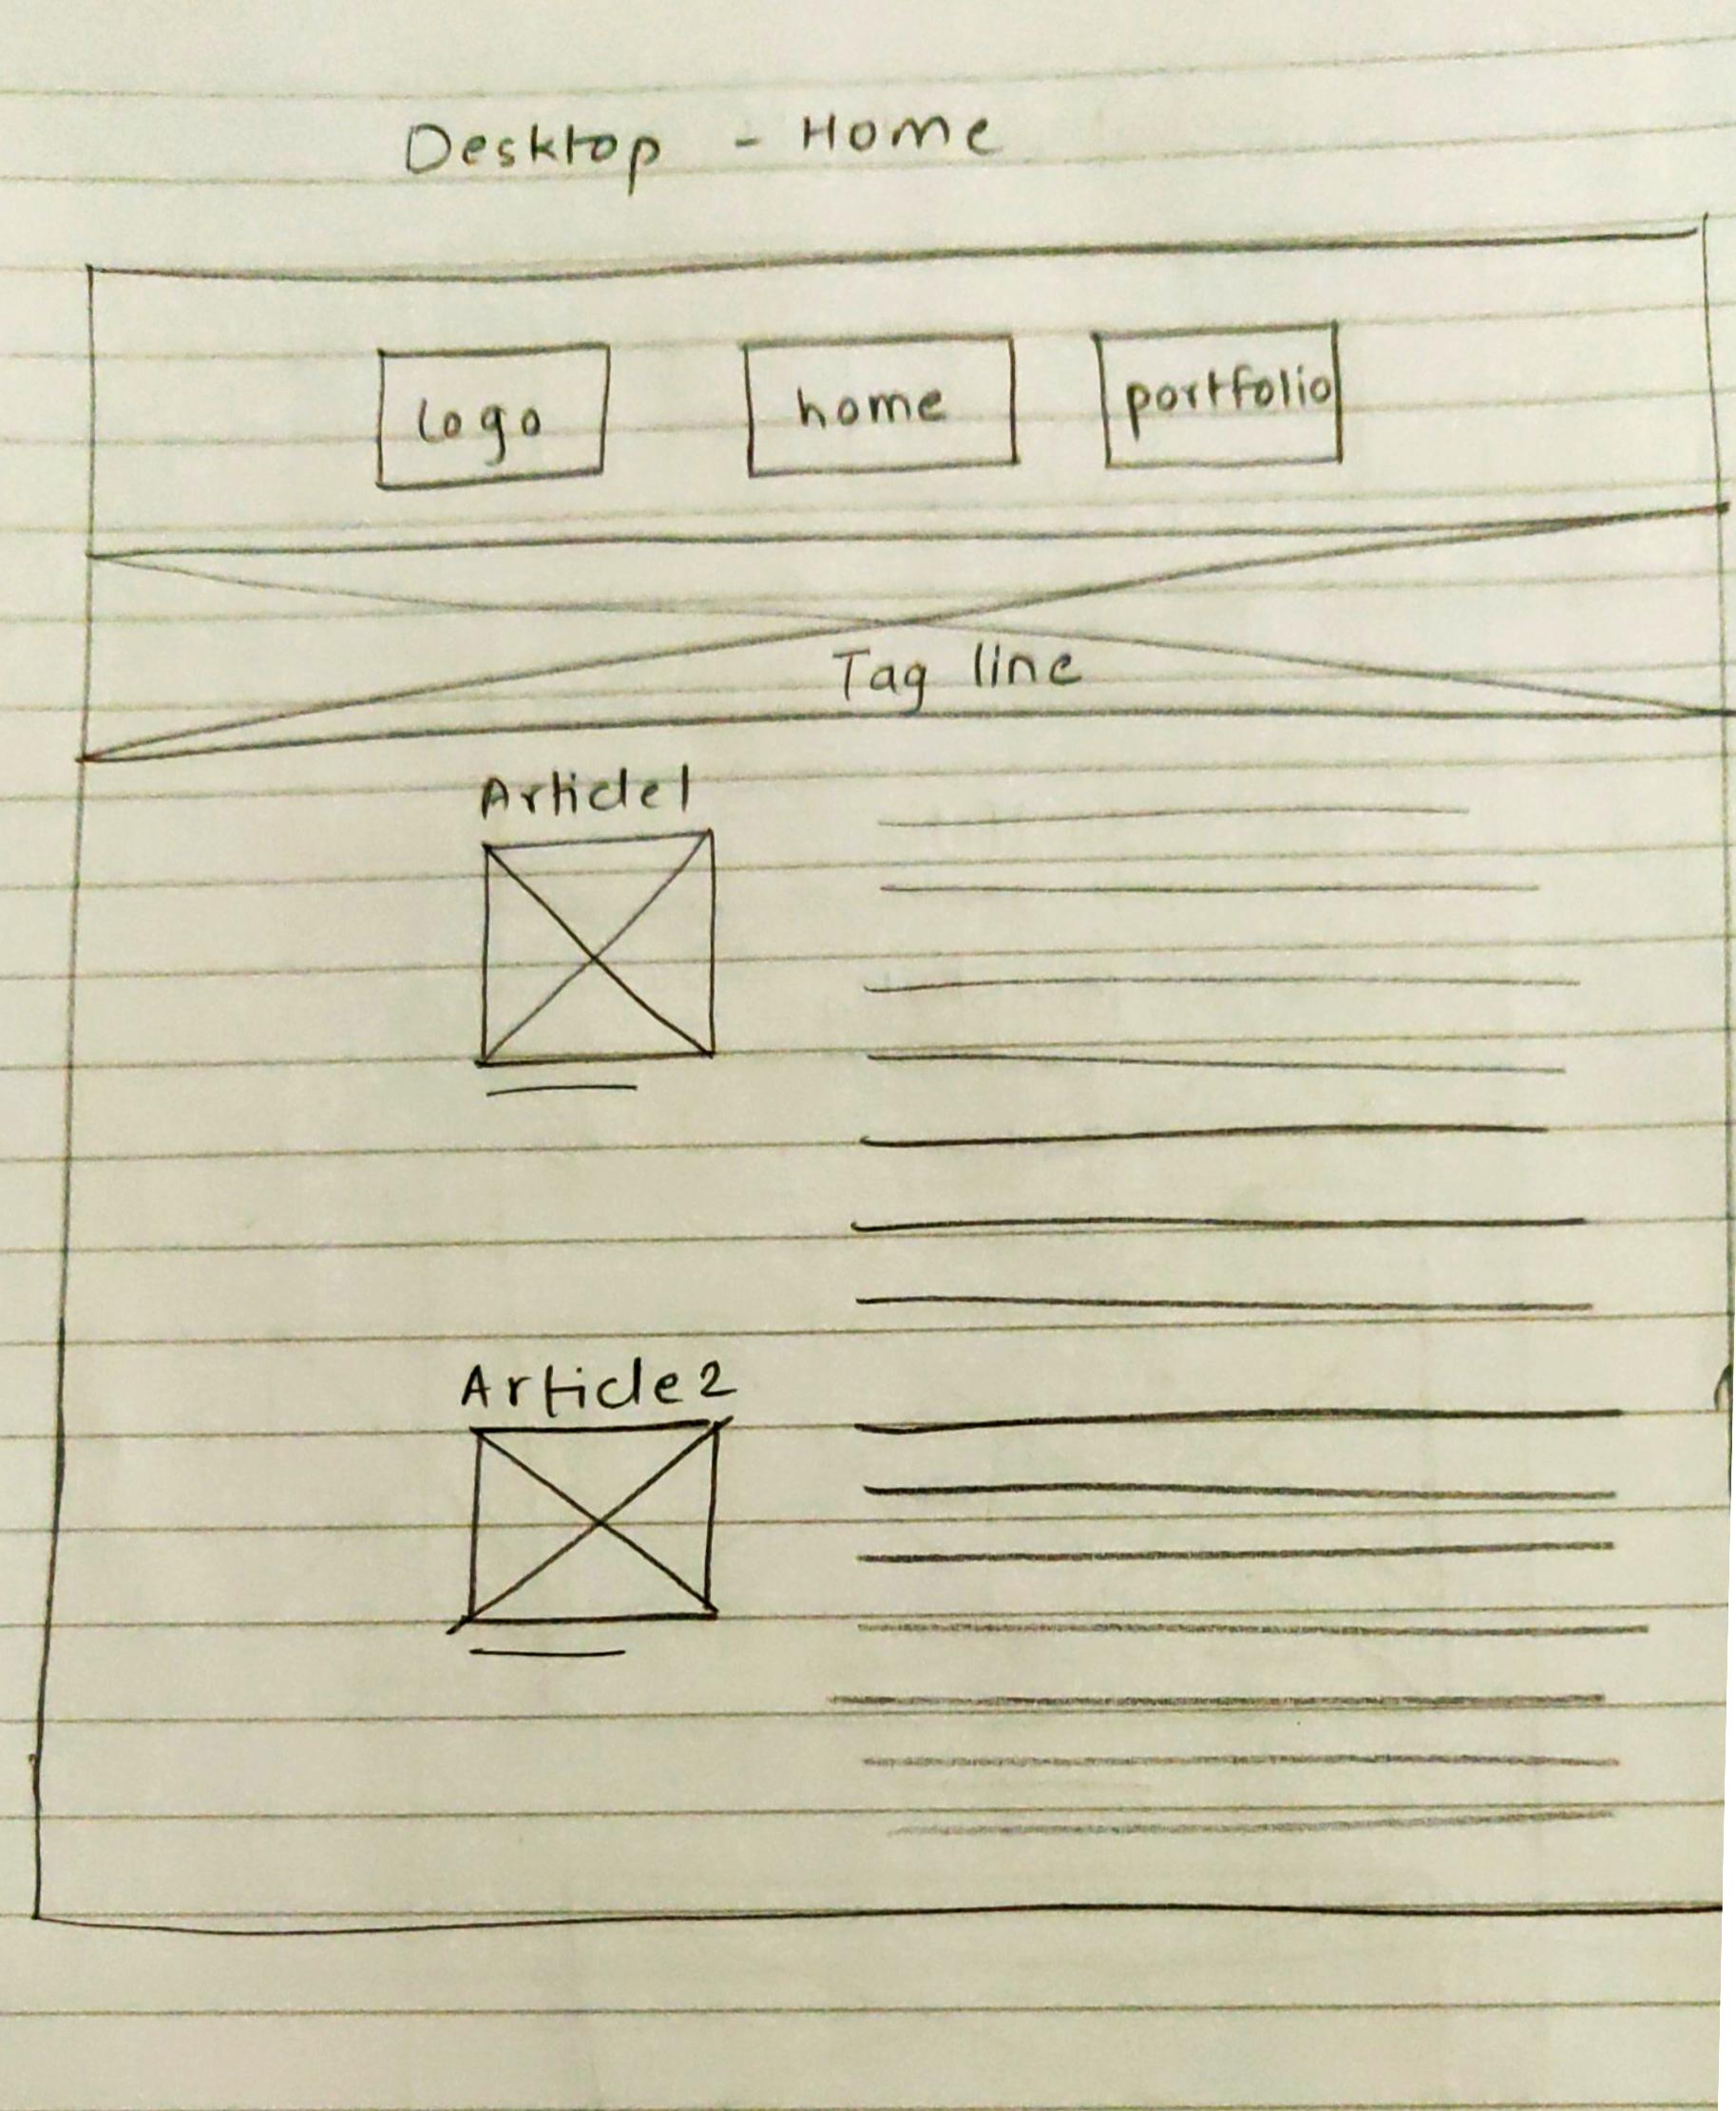 Desktop - Home
logo home portfolio
Tag line
Article1
Article2